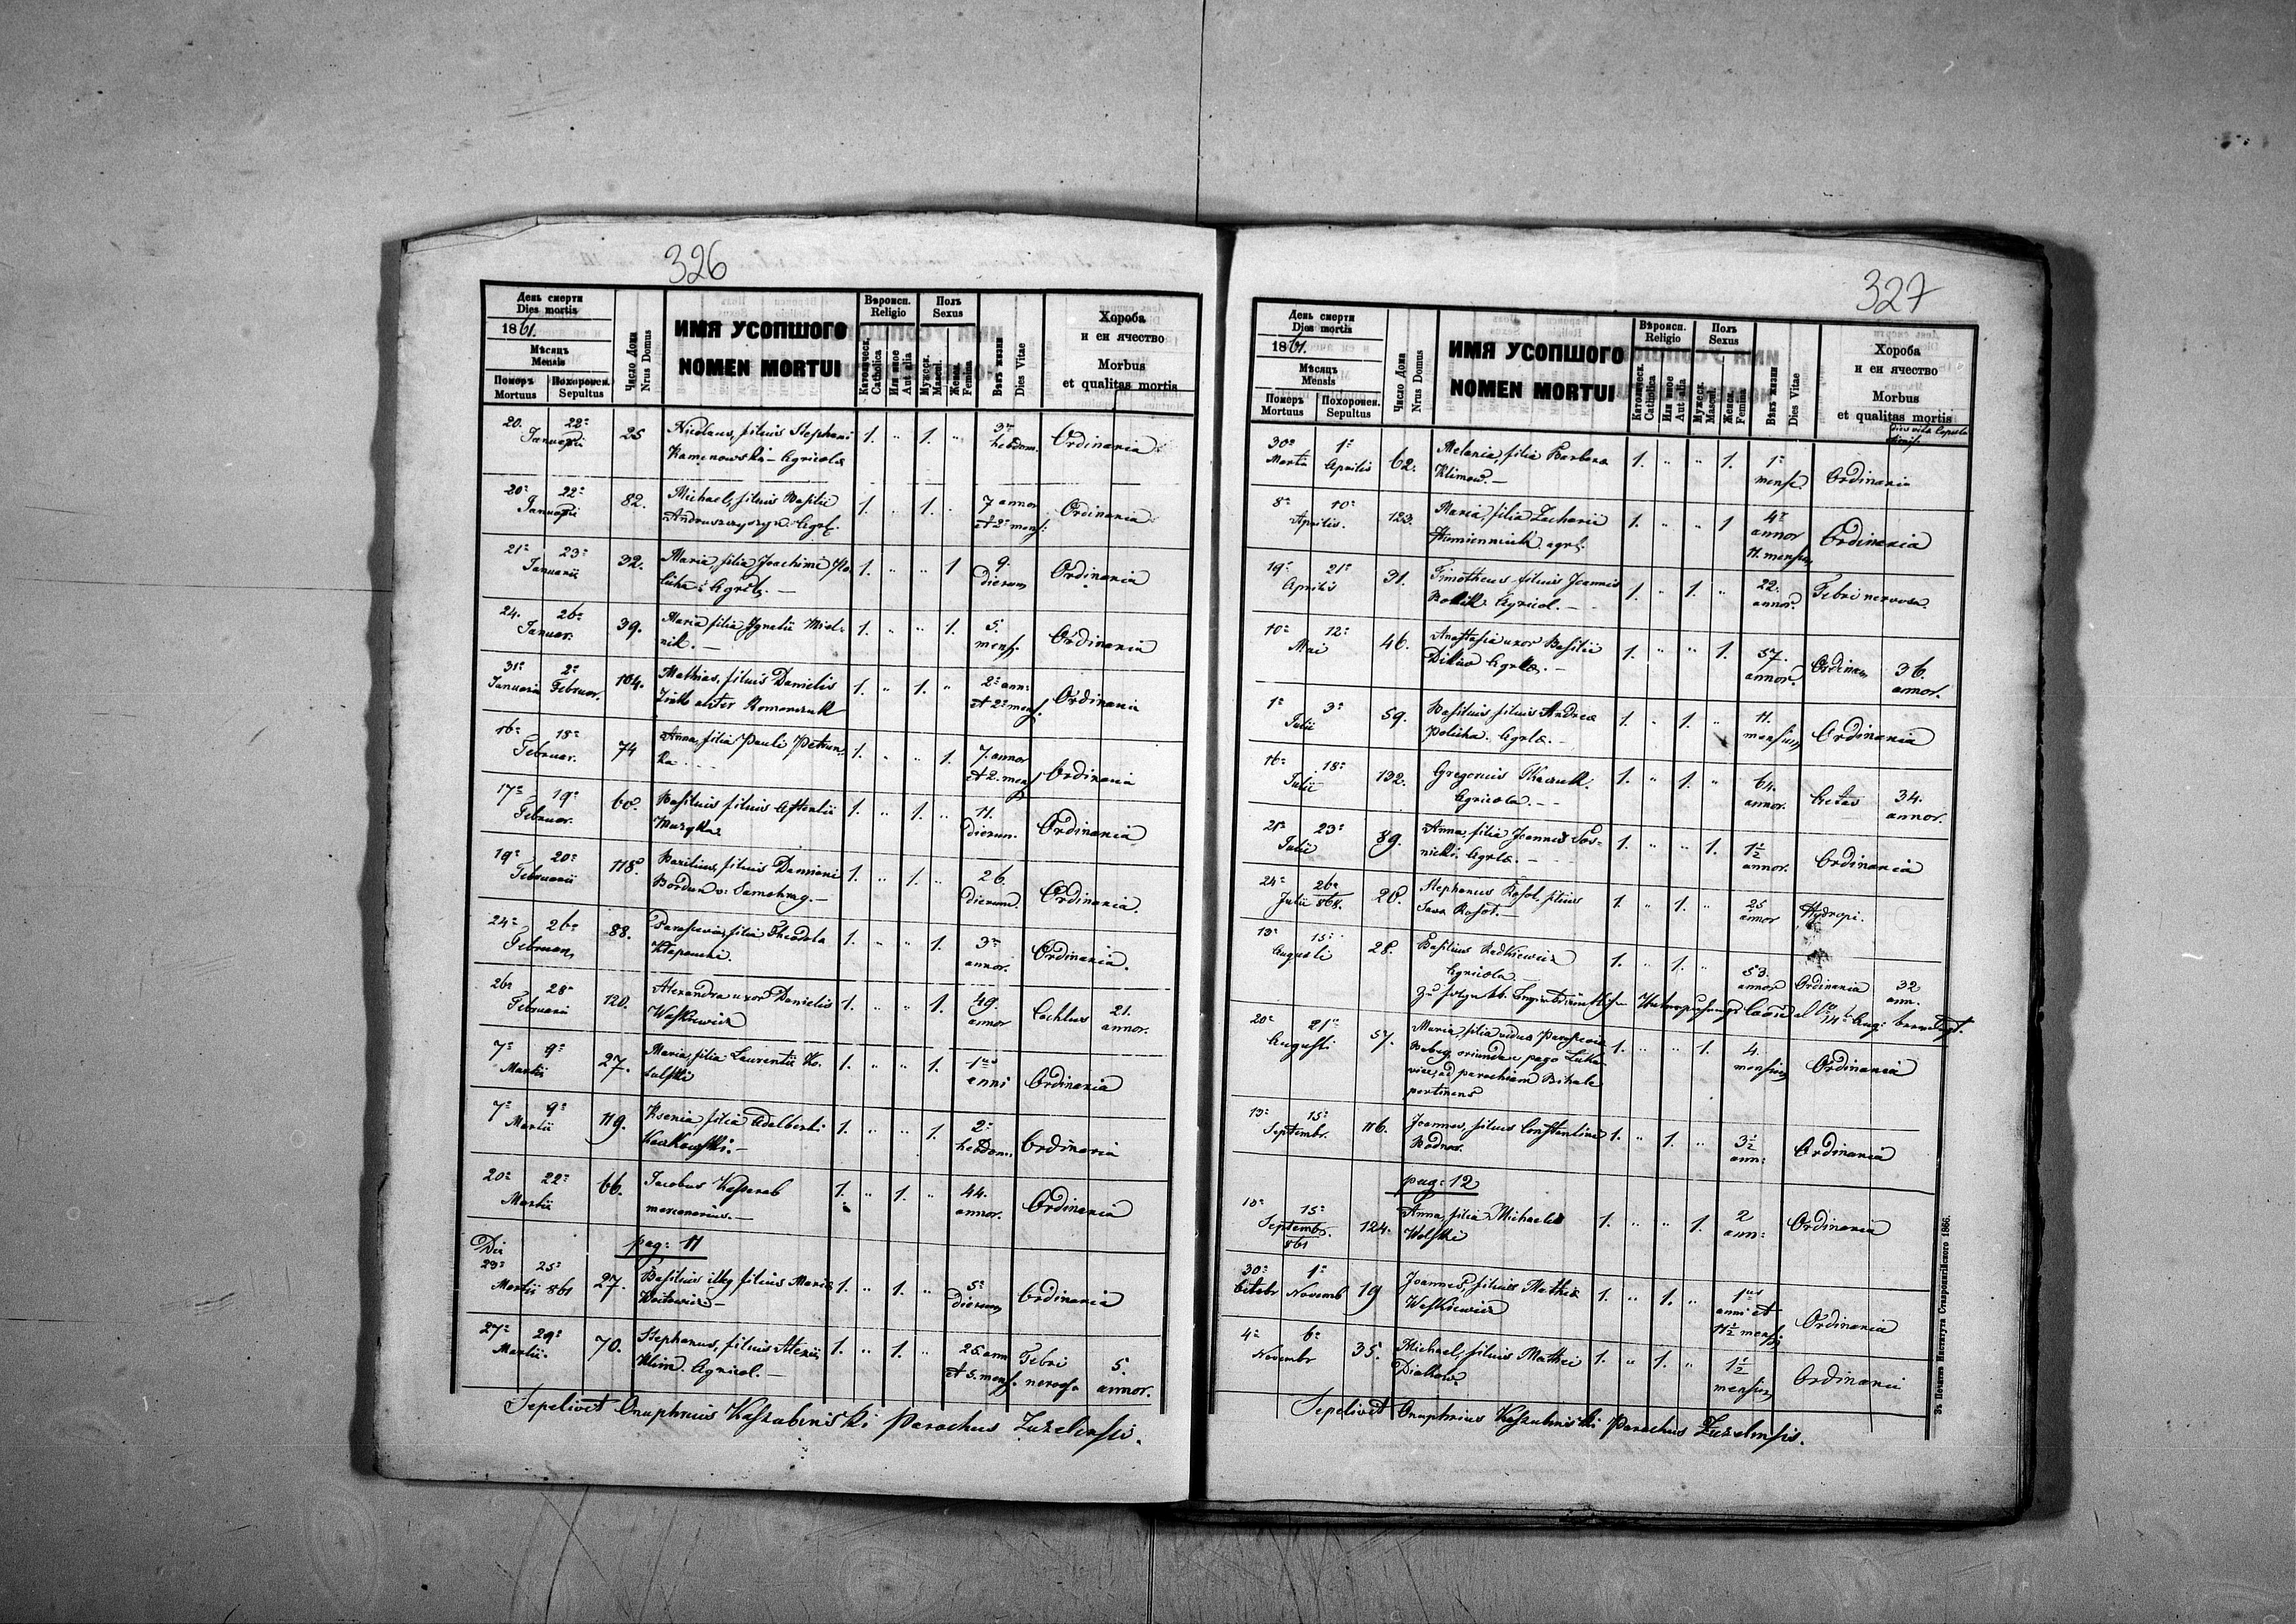 326
День смерти
Dies mortis
1861.
Мѣсяцъ
Mensis
Померъ Похоронен.
Mortuus Sepultus
Число Дома
Nrus Domus
ИМЯ УСОПШОГО
NOMEN MORTUI
Вѣроисп.
Religio
Католическ.
Catholica
Или иное
Aut alia
Полъ
Sexus
Мужеск.
Mascul.
Женск.
Femina
Вѣкъ жизни
Dies Vitae
Хороба
и еи ячество
Morbus
et qualitas mortis
20. 22 Januarii 25 Nicolaus, filius Stephani 1. " 1. " 3 hebdom. Ordinaria
Kamenowski - Agricola
20 22 Januarii 82. Michael, filius Basilii 1. " 1. " 7 annor et 2 mens: Ordinaria
21 23 Januarii 32. Maria, filia Joachimi 1. " " 1 9. dierum Ordinaria
24. 26 Januar. 39. Maria filia Ignatii Miel- 1. " " 1. 5. mens. Ordinaria
nik. -
31 Januarii 2 Februar. 104. Mathias, filius Danielis 1. " 1. " 2 ann: et 2 mens. Ordinaria
16 18 Februar. 74 Anna, filia Pauli Petrun- 1. " " 1. 7. annor et 2. mens Ordinaria
ka
17 19 Februar. 60. Basilius filius 1. " 1. " 11. dierum. Ordinaria
19 20 Februarii 118. Basilius, filius Damiani 1. " 1. " 26 dierum. Ordinaria.
Bordun
24 26 Februar. 88. filia 1. " " 1. 3 annor. Ordinaria.
26 28 Februarii 120. Alexandra uxor Danielis 1. " " 1. 49. annor 21. annor.
Waskiewicz
7 9 Martii 27. Maria, filia Laurentii Ko- 1. " " 1. 1 anni Ordinaria
7 9 Martii 119. Ksenia filia Adalberti 1. " " 1. 2 hebdom. Ordinaria
20 22 Martii 66. Jacobus 1. " 1. " 44. annor. Ordinaria
mercenarius. -
pag: 11
Die 23 25 Martii 861 27. Basilius illeg filius Maria 1. " 1. " 5 dierum Ordinaria
Woitowicz -
27 29 Martii. 70. Stephanus, filius Alexii 1. " 1. " 25 ann et 5. mens. Febri nervosa 5. annor.
Klim. Agricol. -
Sepelivit Onuphrius Kaszubinski Parochus Zuzelensis.
327
День смерти
Dies mortis
1861.
Мѣсяцъ
Mensis
Померъ Похоронен.
Mortuus Sepultus
Число Дома
Nrus Domus
ИМЯ УСОПШОГО
NOMEN MORTUI
Вѣроисп.
Religio
Католическ.
Catholica
Или иное
Aut alia
Полъ
Sexus
Мужеск.
Mascul.
Женск.
Femina
Вѣкъ жизни
Dies Vitae
Хороба
и еи ячество
Morbus
et qualitas mortis
30 Martii 1 Aprilis 62. Melania, filia Barbara 1. " " 1. 1 mens. Ordinaria
Klimow. -
8 10 Aprilis. 123. Maria, filia Zacharii 1. " " 1 4 annor 11. mensium Ordinaria
19 21 Aprilis 31. Timotheus filius Joannis 1. " 1. " 22. annor. Febri nervosa.
Agricol. -
10 12 Mai 46. Anastasia uxor Basilii 1. " " 1. 57. annor. Ordinar. 36. annor.
1 3 Julii 59. Basilius filius Andrea 1. " 1. " 11. mensium Ordinaria
16 18 Julii 132. Gregorius Tkaczuk. 1. " 1. " 64. annor. Aetas 34. annor.
Agricola. -
21 23 Julii 89. Anna, filia Joannis Sos- 1. " " 1. 1 1/2 annor. Ordinaria
nicki.
24 26 Julii 868. 28. Stephanus Rosol filius 1. " 1. " 25 annor Hydropi.
Sava Rosol. -
13 15 Augusti 28. Basilius Radkiewicz 1. " 1. " 53. annor Ordinaria 32 ann.
Agricola -
20 21 Augusti 57. Maria, filia vidua 1. " " 1. 4. mensium Ordinaria
oriunda e pago Luka-
vica, ad parochiam
pertinens
13 15 Septembr. 116. Joannes, filius Constantini 1. " 1. " 3 1/2 ann: Ordinaria
Bodnar.
pag: 12
13 15 Septembr. 861 124. Anna, filia Michaelis 1. " " 1. 2 ann: Ordinaria
Wolski
30 Octobr 1 Novemb 19 Joannes, filius Mathia 1. " 1. " 1 anni et 11 1/2 mensi Ordinaria
Waskiewicz
4 6 Novembr 35. Michael, filius Mathei 1. " 1. " 1 1/2 mensium Ordinaria
Diakow.
Sepelivit Onuphrius Kaszubinski Parochus Zuzelensis.
Зъ Печатнѣ Института Ставропигійского 1866.